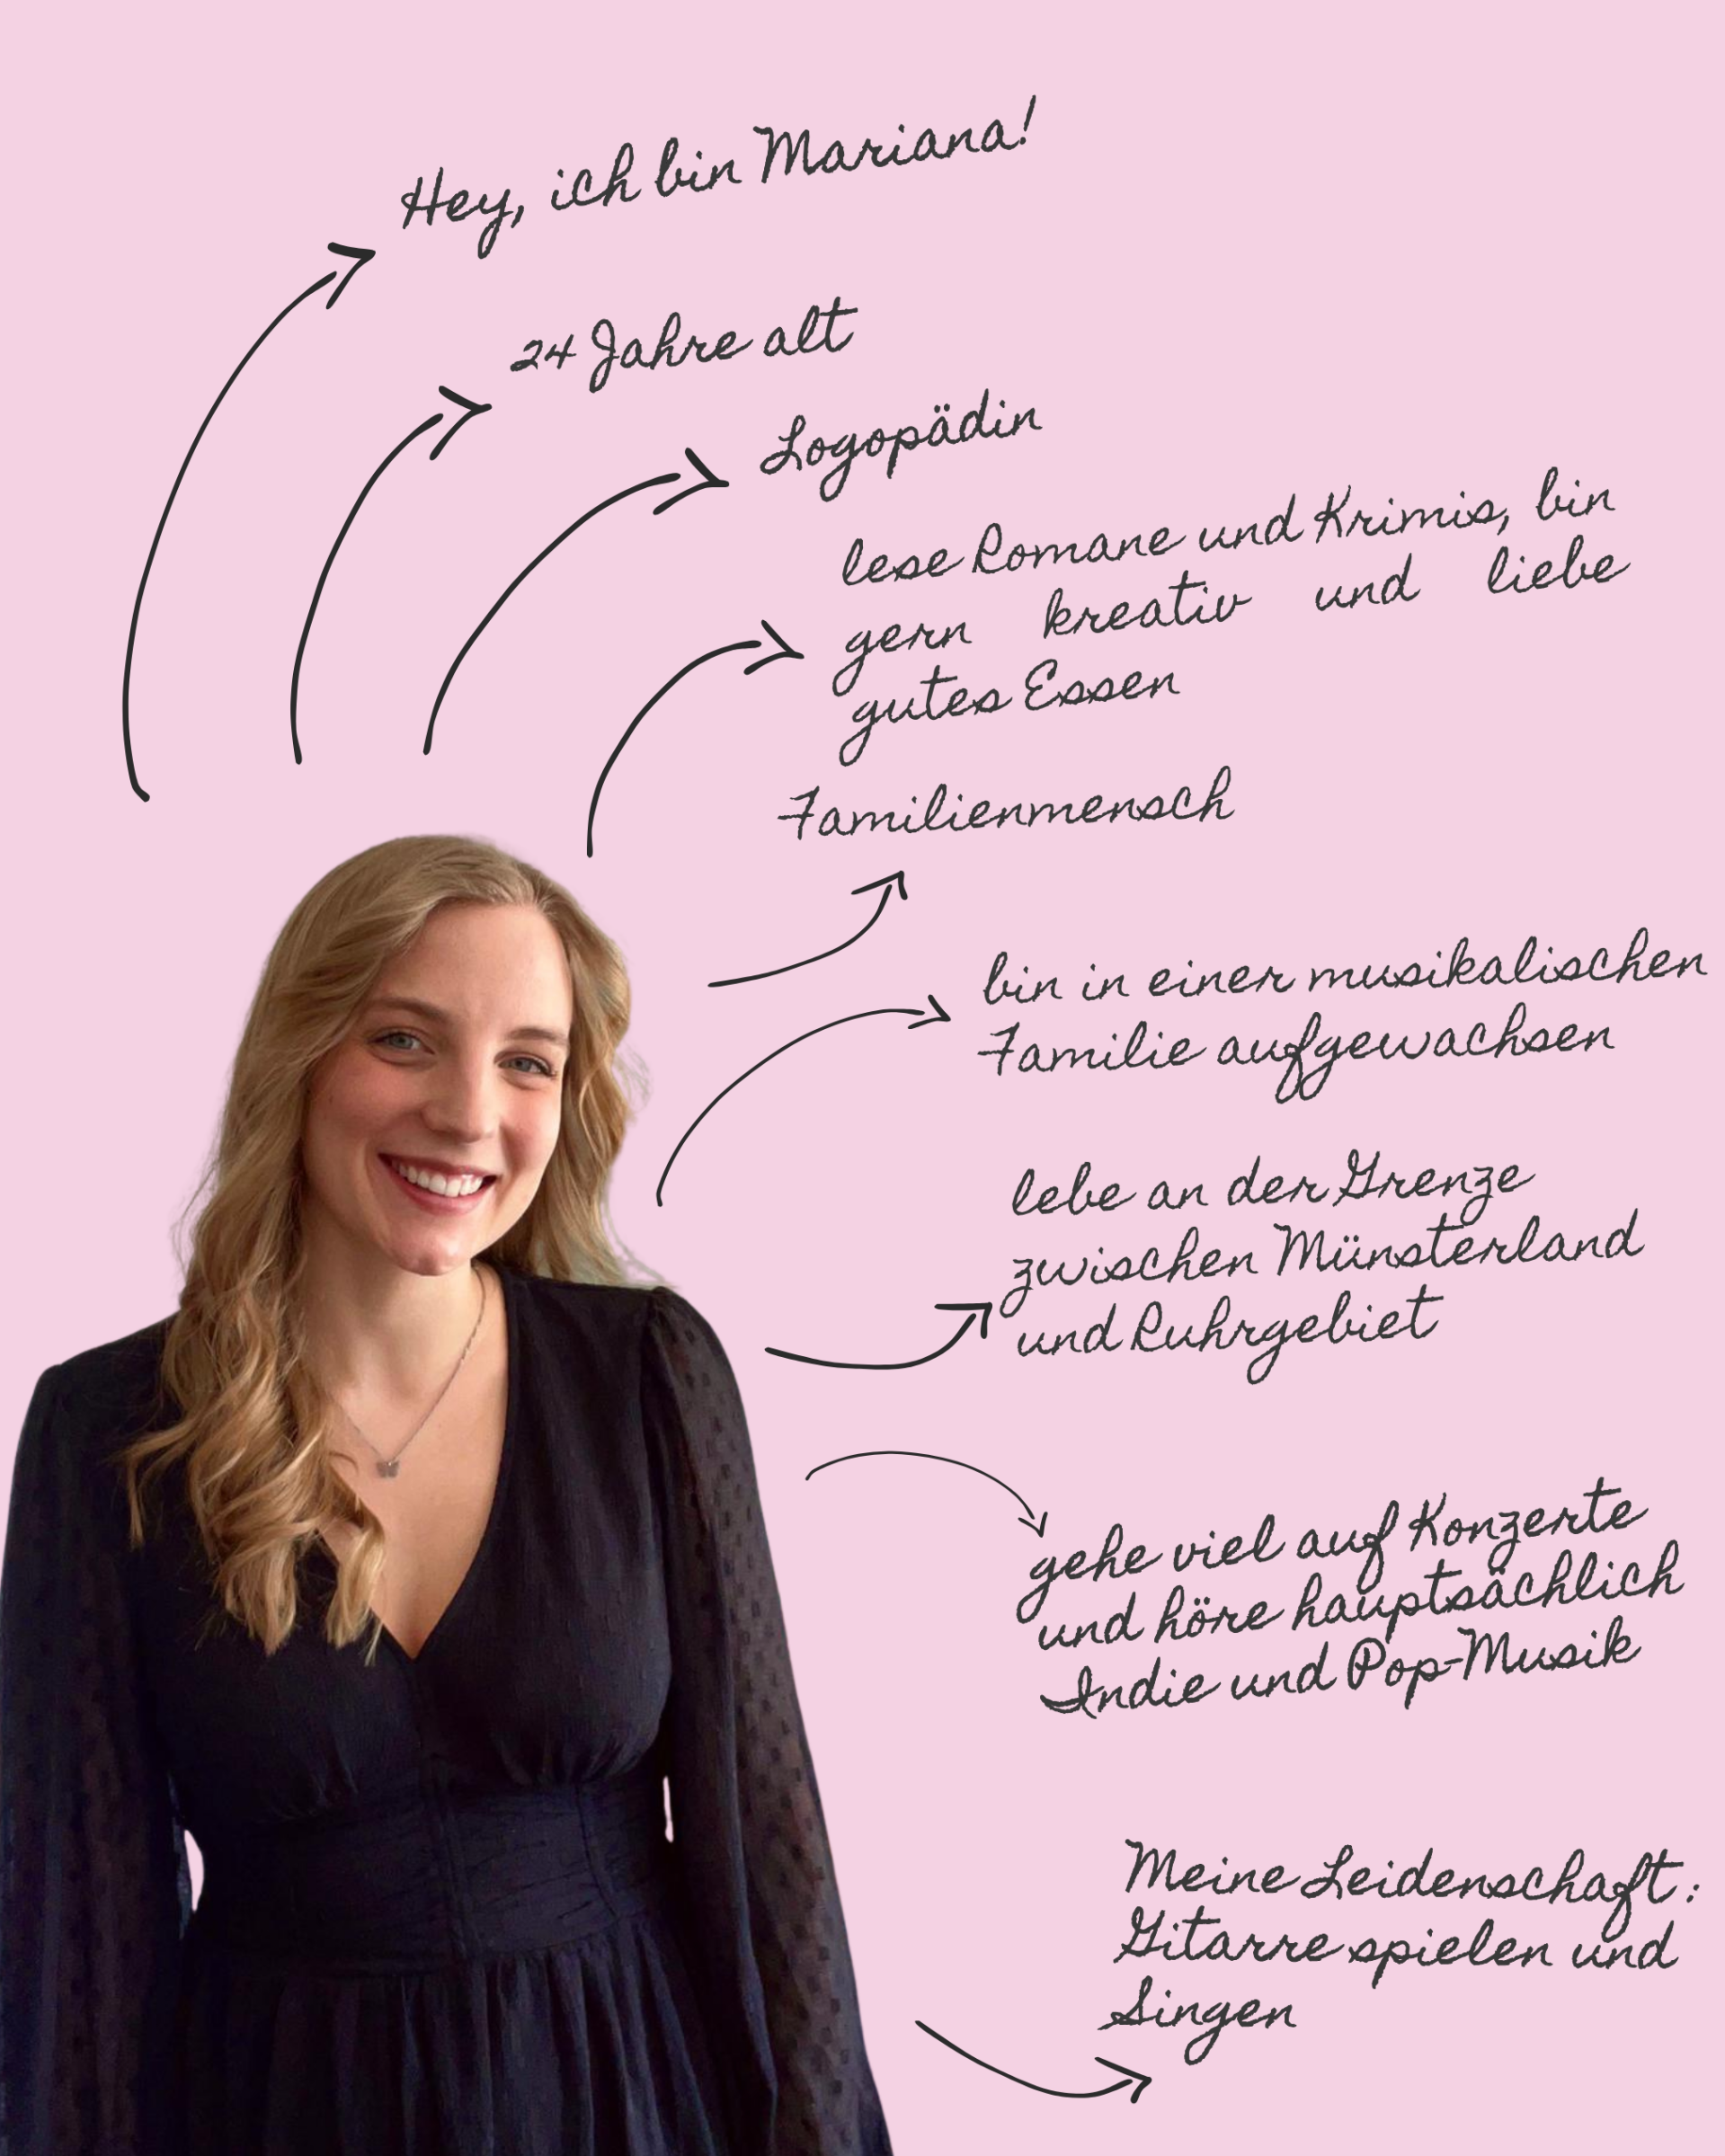 Hey, ich bin Mariana!
24 Jahre alt
Logopädin
lese Romane und Krimis, bin
gern kreativ und liebe
gutes Essen
Familienmensch
bin in einer musikalischen
Familie aufgewachsen
lebe an der Grenze
zwischen Münsterland
und Ruhrgebiet
gehe viel auf Konzerte
und höre hauptsächlich
Indie und Pop-Musik
Meine Leidenschaft:
Gitarre spielen und
Singen